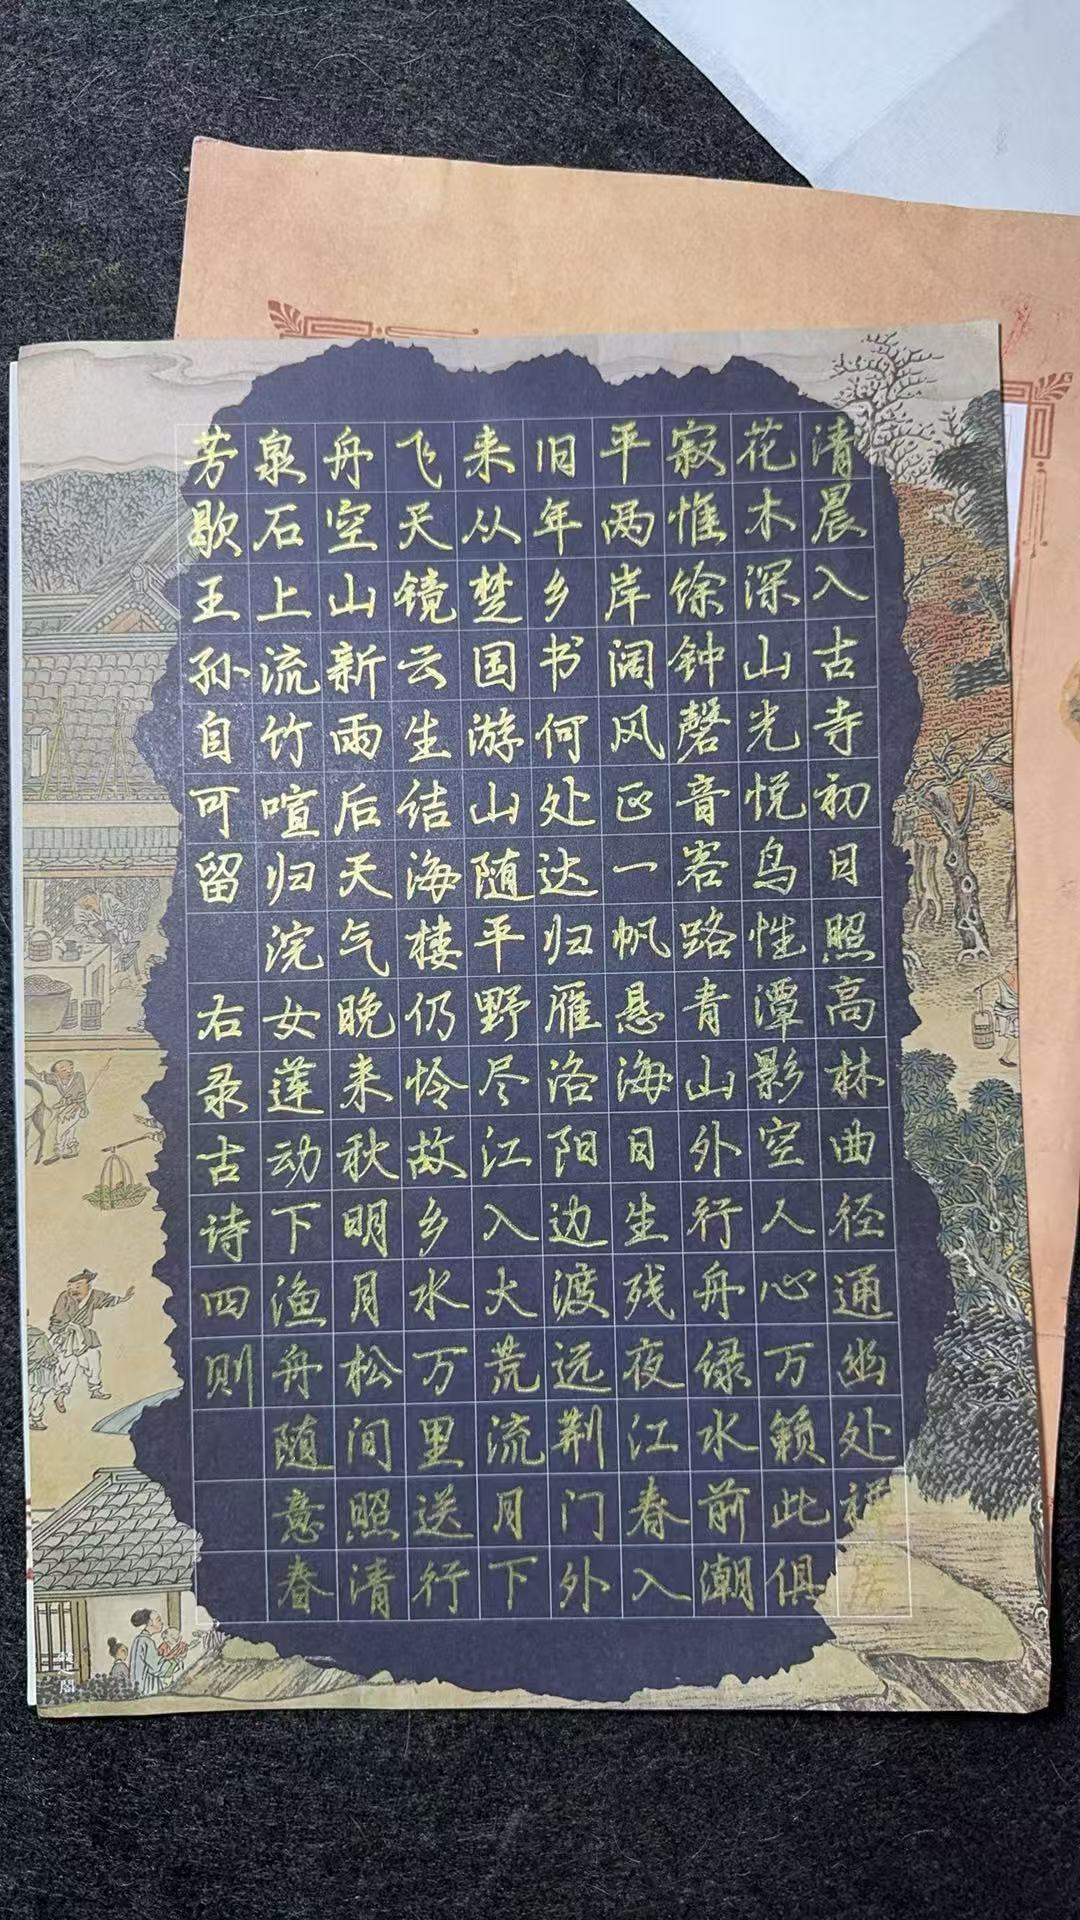 清晨入古寺初日照高林曲径通幽处禅房
花木深山光悦鸟性潭影空人心万籁此俱
寂惟馀钟磬音客路青山外行舟绿水前潮
平两岸阔风正一帆悬海日生残夜江春入
旧年乡书何处达归雁洛阳边渡远荆门外
来从楚国游山随平野尽江入大荒流月下
飞天镜云生结海楼仍怜故乡水万里送行
舟空山新雨后天气晚来秋明月松间照清
泉石上流竹喧归浣女莲动下渔舟随意春
芳歇王孙自可留 右录古诗四则